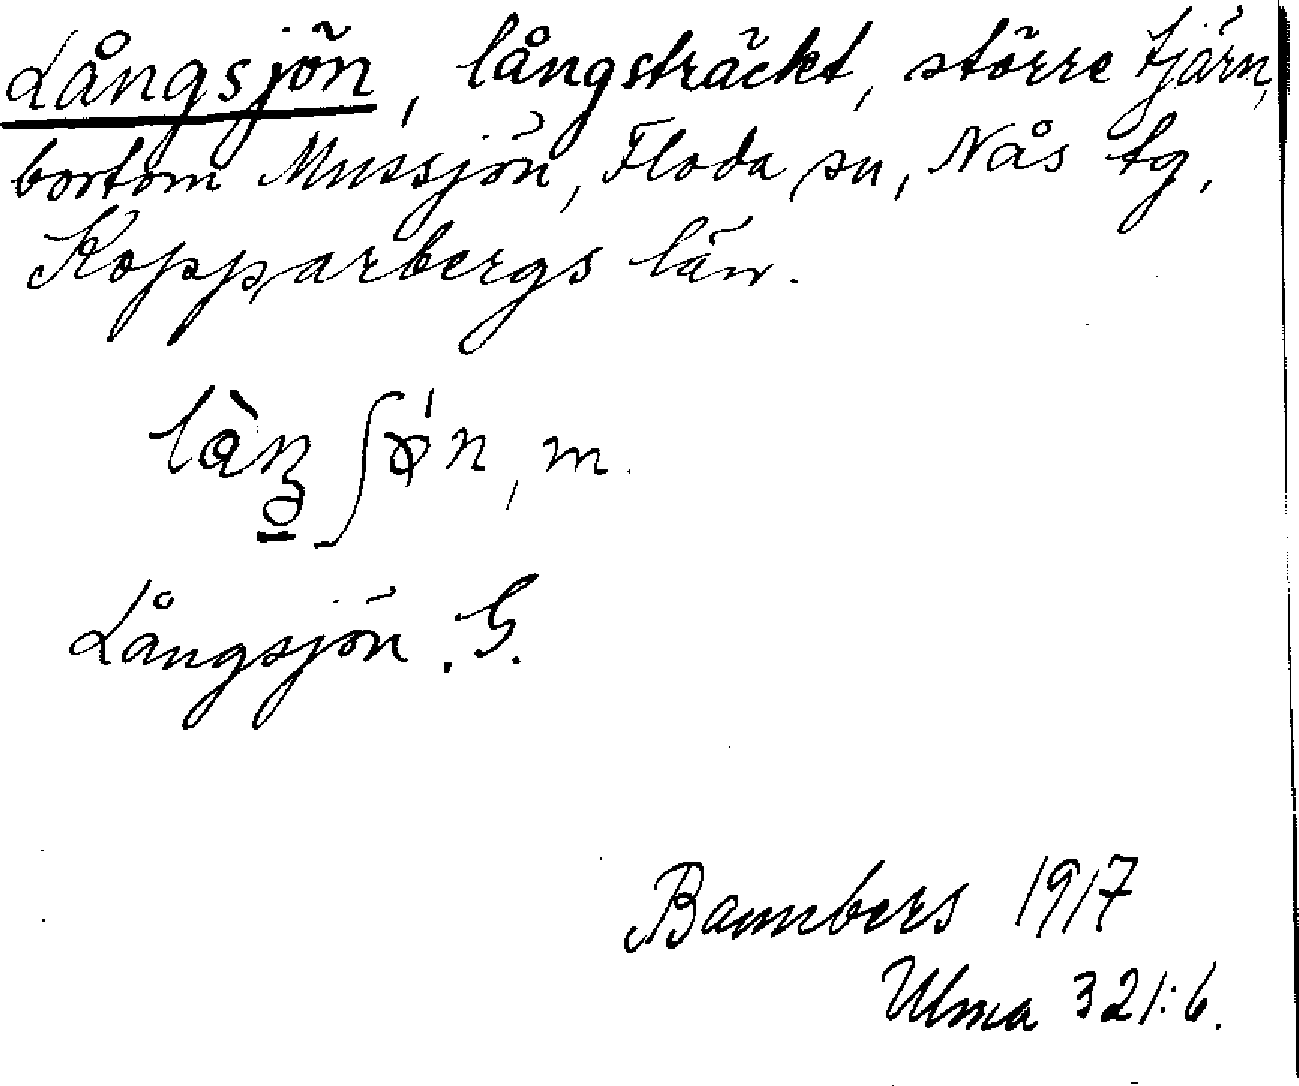 Långsjön, långsträckt, större tjärn,
bortom Mussjön, Floda sn, Nås tg,
Kopparbergs län.
m.
Långsjön. G.
Bannbers 1917
Ulma 321:6.